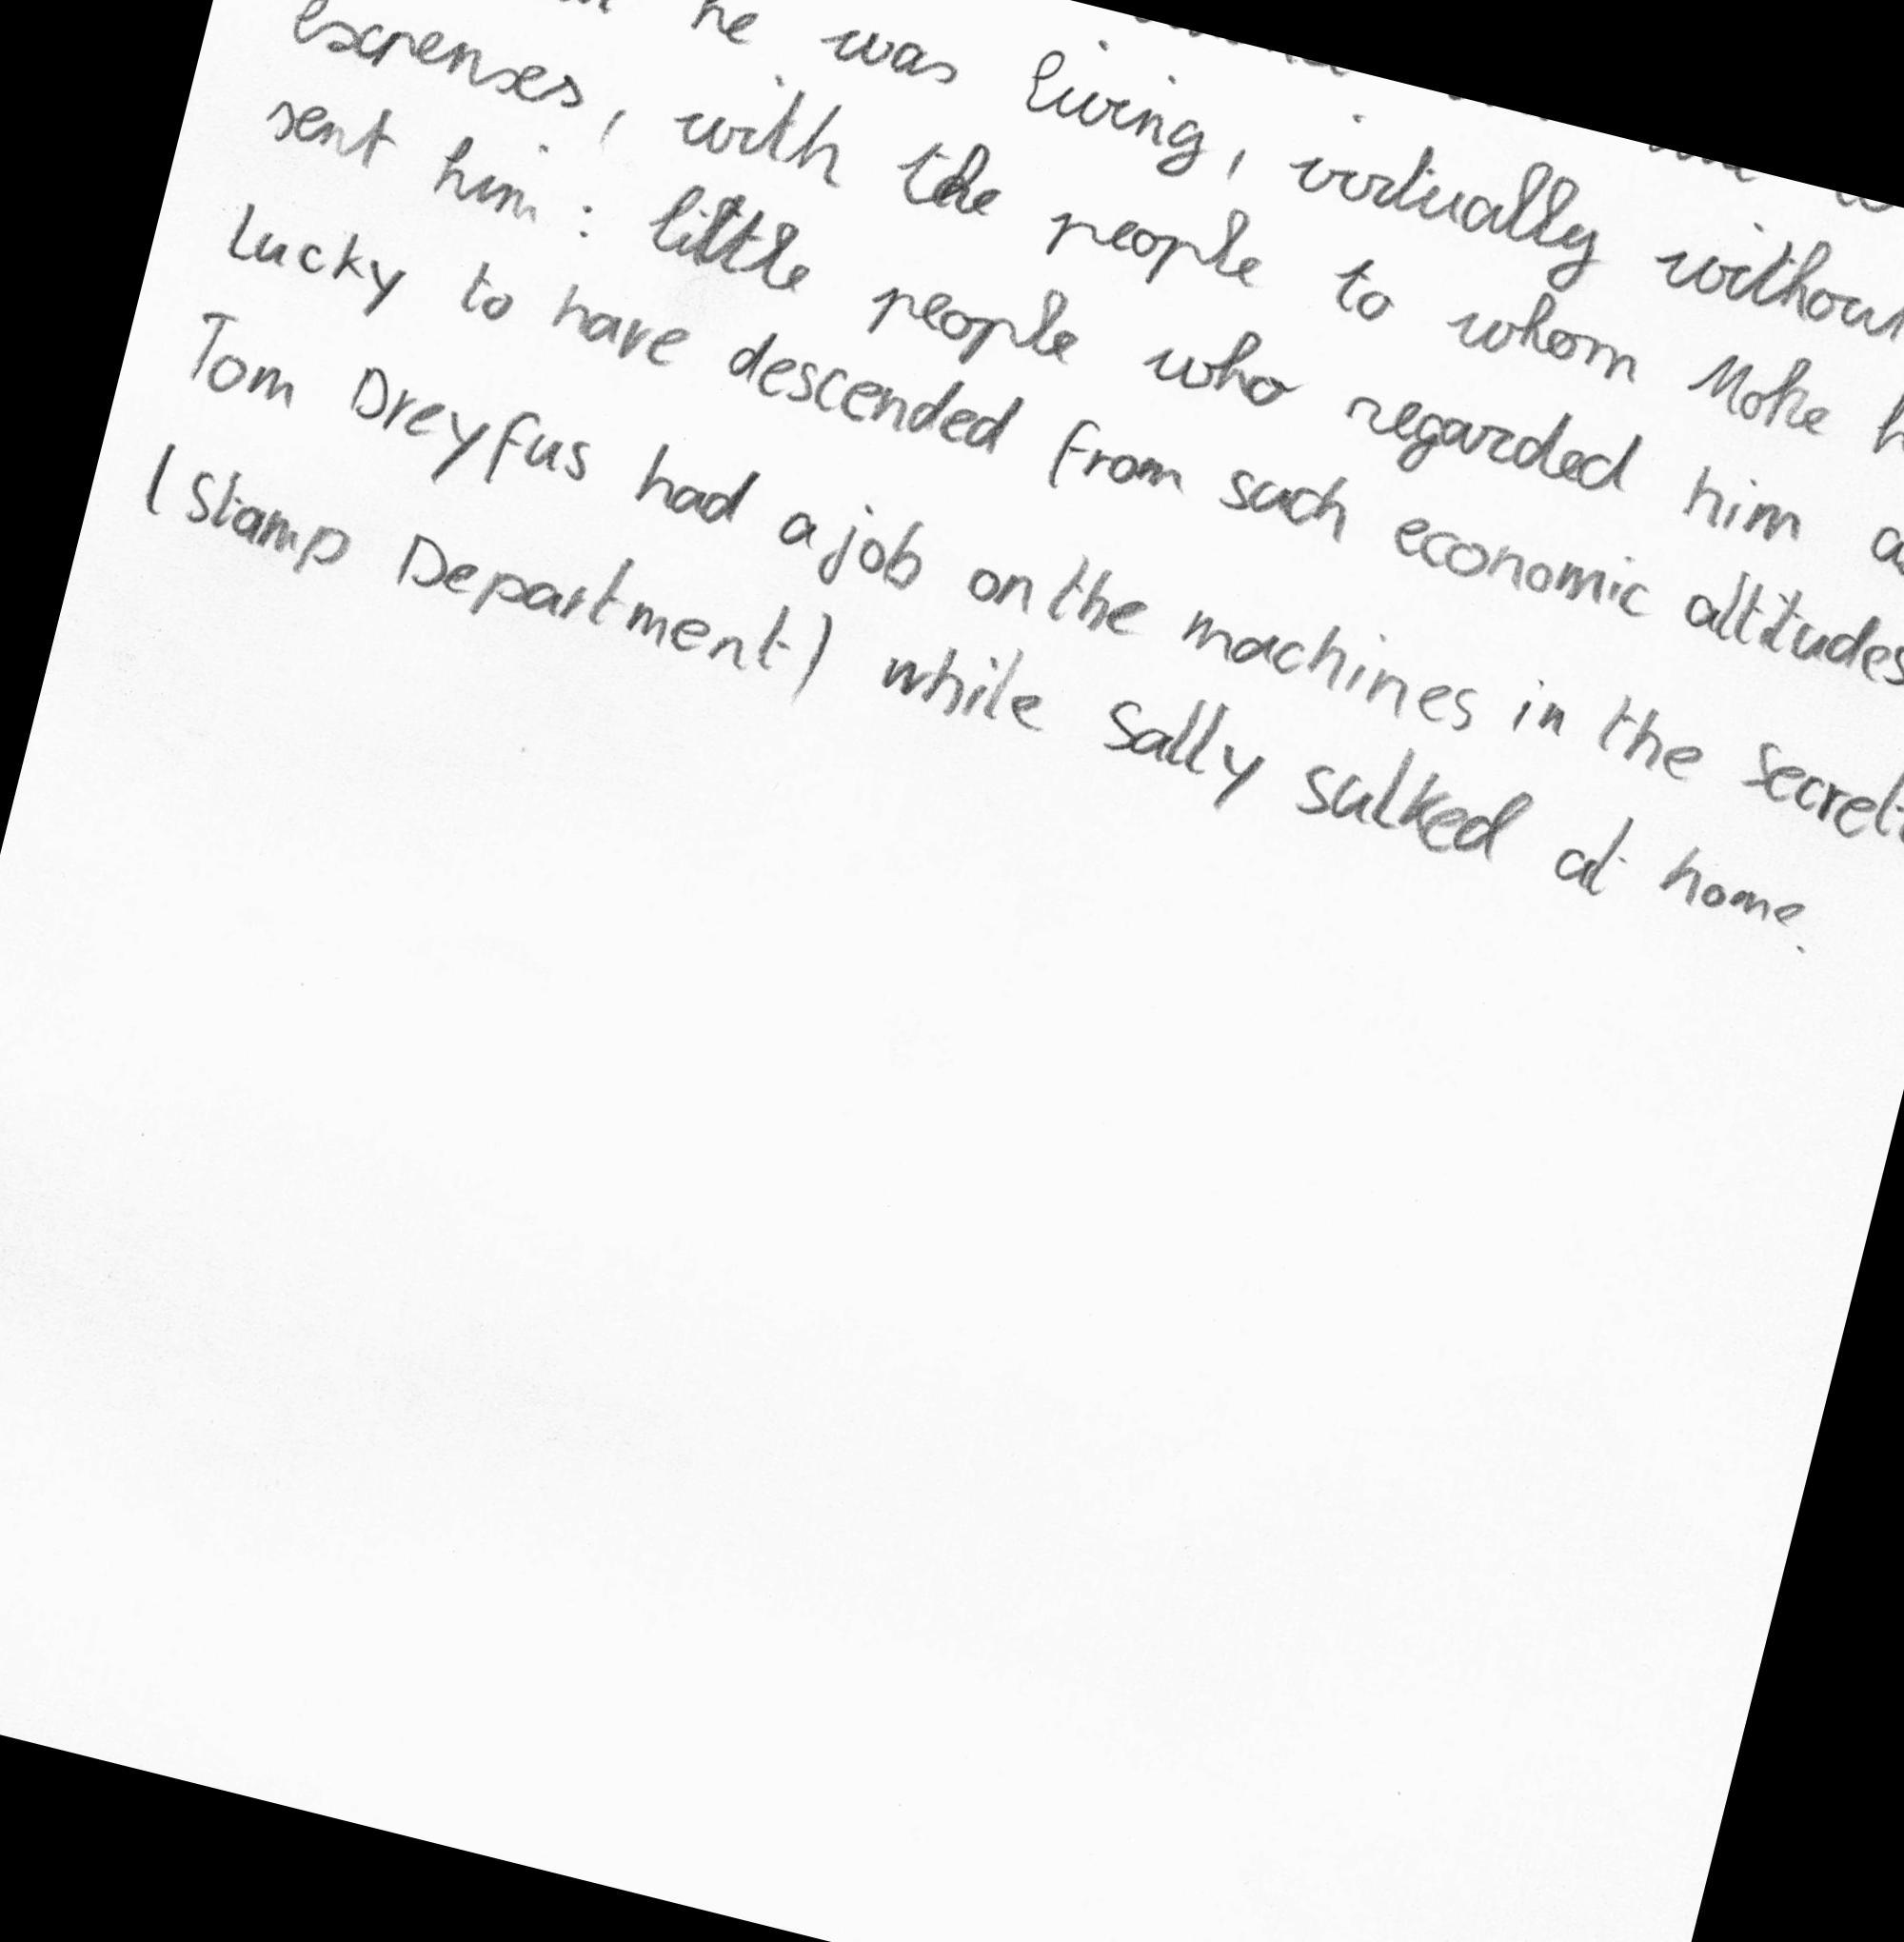 he was living, virtually without
expenses, with the people to whom Moke
sent him: little people who regarded him
Lucky to have descended from such economic altitudes
Tom Dreyfus had a job on the machines in the
(Stamp Department) while Sally sulked at home.